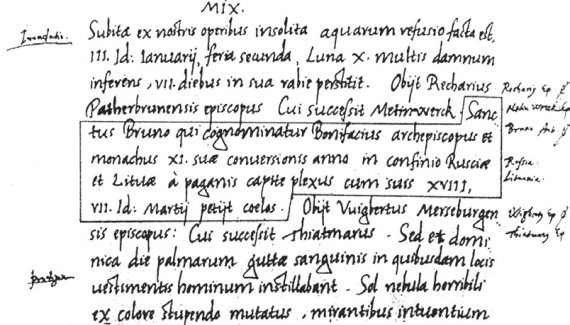 MIX.
Subita ex nostris operibus insolita aquarum refusio facta est.
III. Id: Ianuarij, feria secunda, Luna X. multis damnum
inferens, VII. diebus in sua rabie perstitit. Obijt Recharius
Patherbrunensis episcopus Cui successit Meinwerck. Sanc
tus Bruno qui cognominatur Bonifacius archepiscopus et
monachus XI. suæ conversionis anno in confinio Rusciæ
et Lituæ à paganis capite plexus cum suis XVIII,
VII. Id: Martij petijt coelos. Obijt Vuigbertus Merseburgen
sis episcopus: Cui successit Thiatmarus. Sed et domi
nica die palmarum guttæ sanguinis in quibusdam locis
vestimentis hominum instillabant. Sol nebula horribili
ex colore stupendo mutatus, mirantibus intuentium
Bruno
Russia
Lituania